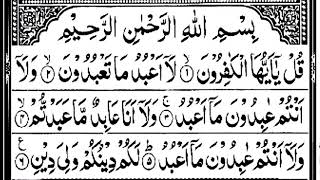 بِسْمِ اللهِ الرَّحْمٰنِ الرَّحِيْمِ
قُلْ يٰٓاَيُّهَا الْكٰفِرُوْنَ ۙ﴿۱﴾ لَاۤ اَعْبُدُ مَا تَعْبُدُوْنَ ۙ﴿۲﴾ وَلَاۤ
اَنْتُمْ عٰبِدُوْنَ مَاۤ اَعْبُدُ ۚ﴿۳﴾ وَلَاۤ اَنَا عَابِدٌ مَّا عَبَدْتُّمْ ۙ﴿۴﴾
وَلَاۤ اَنْتُمْ عٰبِدُوْنَ مَاۤ اَعْبُدُ ؕ﴿۵﴾ لَكُمْ دِيْنُكُمْ وَلِيَ دِيْنِ ﴿۶﴾ ع